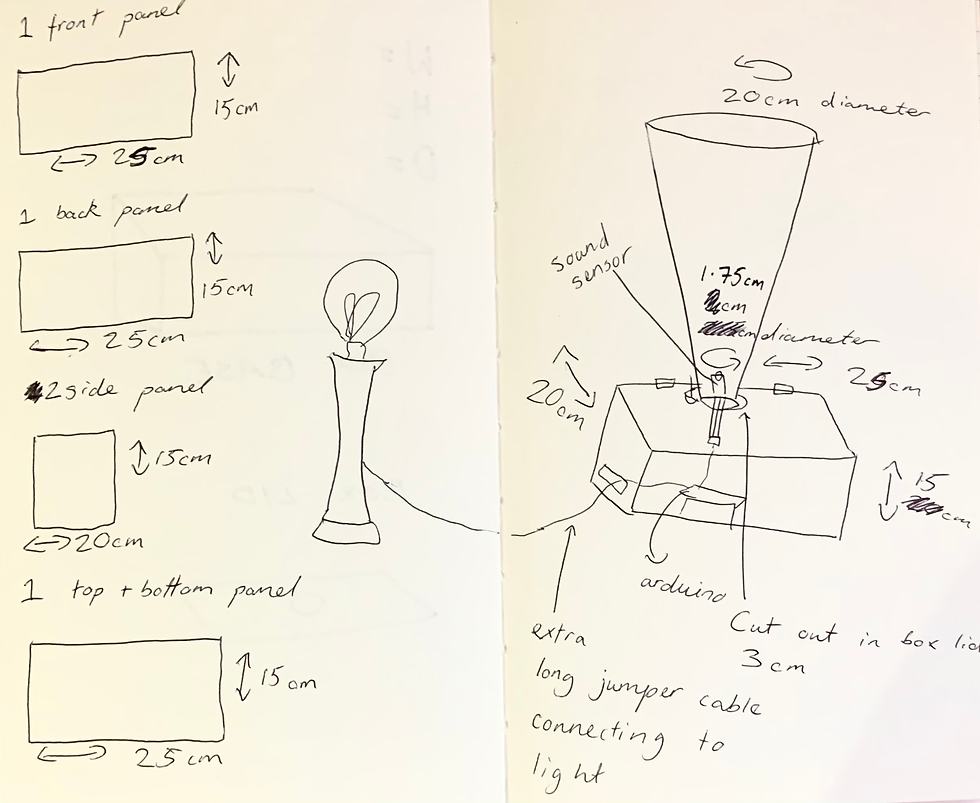 1 front panel
15cm
25cm
1 back panel
15cm
25cm
2 side panel
15cm
20cm
1 top + bottom panel
15cm
25cm
20cm diameter
sound
sensor
1.75cm
cm
cm diameter
25cm
20cm
15
cm
arduino
Cut out in box lid
3cm
extra
long jumper cable
connecting to
light